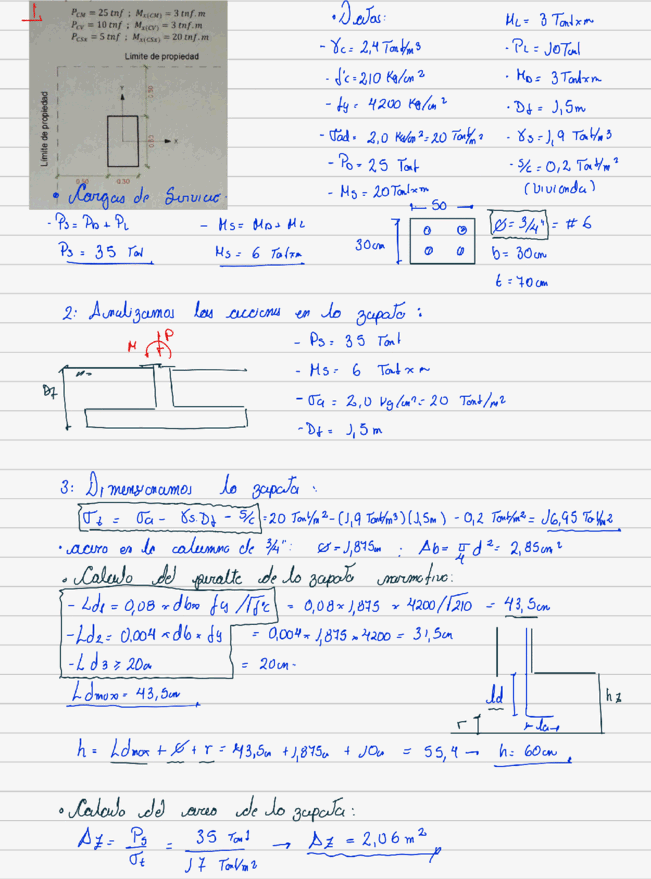 1.
P_CM = 25 tnf ; M_x(CM) = 3 tnf.m
P_CV = 10 tnf ; M_x(CV) = 3 tnf.m
P_CSX = 5 tnf ; M_x(CSX) = 20 tnf.m
Límite de propiedad
Límite de propiedad
Y
X
0.50
0.50
0.30
• Datos:
- γc = 2,4 Tonf/m³
- f'c = 210 Kg/cm²
- fy = 4200 Kg/cm²
- σad = 2,0 Kg/cm² = 20 Tonf/m²
- PD = 25 Tonf
- Ms = 20 Tonf×m
ML = 3 Tonf×m
· PL = 10 Tonf
· MD = 3 Tonf×m
· Df = 1,5m
· γs = 1,9 Tonf/m³
· S/c = 0,2 Tonf/m²
(vivienda)
• Cargas de Servicio.
- Ps = PD + PL
Ps = 35 Tonf
- Ms = MD + ML
Ms = 6 Tonf×m
50
30cm
Ø = 3/4" = #6
b = 30cm
t = 70cm
2: Analizamos las acciones en la zapata:
M
P
Df
- Ps = 35 Tonf
- Ms = 6 Tonf×m
- σa = 2,0 Kg/cm² = 20 Tonf/m²
- Df = 1,5m
3: Dimensionamos la zapata:
σt = σa - γs.Df - S/c = 20 Tonf/m² - (1,9 Tonf/m³)(1,5m) - 0,2 Tonf/m² = 16,95 Tonf/m²
• acero en la columna de 3/4": Ø = 1,875cm ; Ab = π/4 d² = 2,85cm²
• Calculo del peralte de la zapata normativo:
- Ld1 = 0,08 × db × fy /√f'c = 0,08 × 1,875 × 4200/√210 = 43,5cm
- Ld2 = 0.004 × db × fy = 0,004 × 1,875 × 4200 = 31,5cm
- Ld3 ≥ 20cm = 20cm
Ldmax = 43,5cm
ld
hz
r
h = Ldmax + Ø + r = 43,5cm + 1,875cm + 10cm = 55,4 → h = 60cm
• Calculo del area de la zapata:
Az = Ps/σt = 35 Tonf/17 Tonf/m² → Az = 2,06 m²